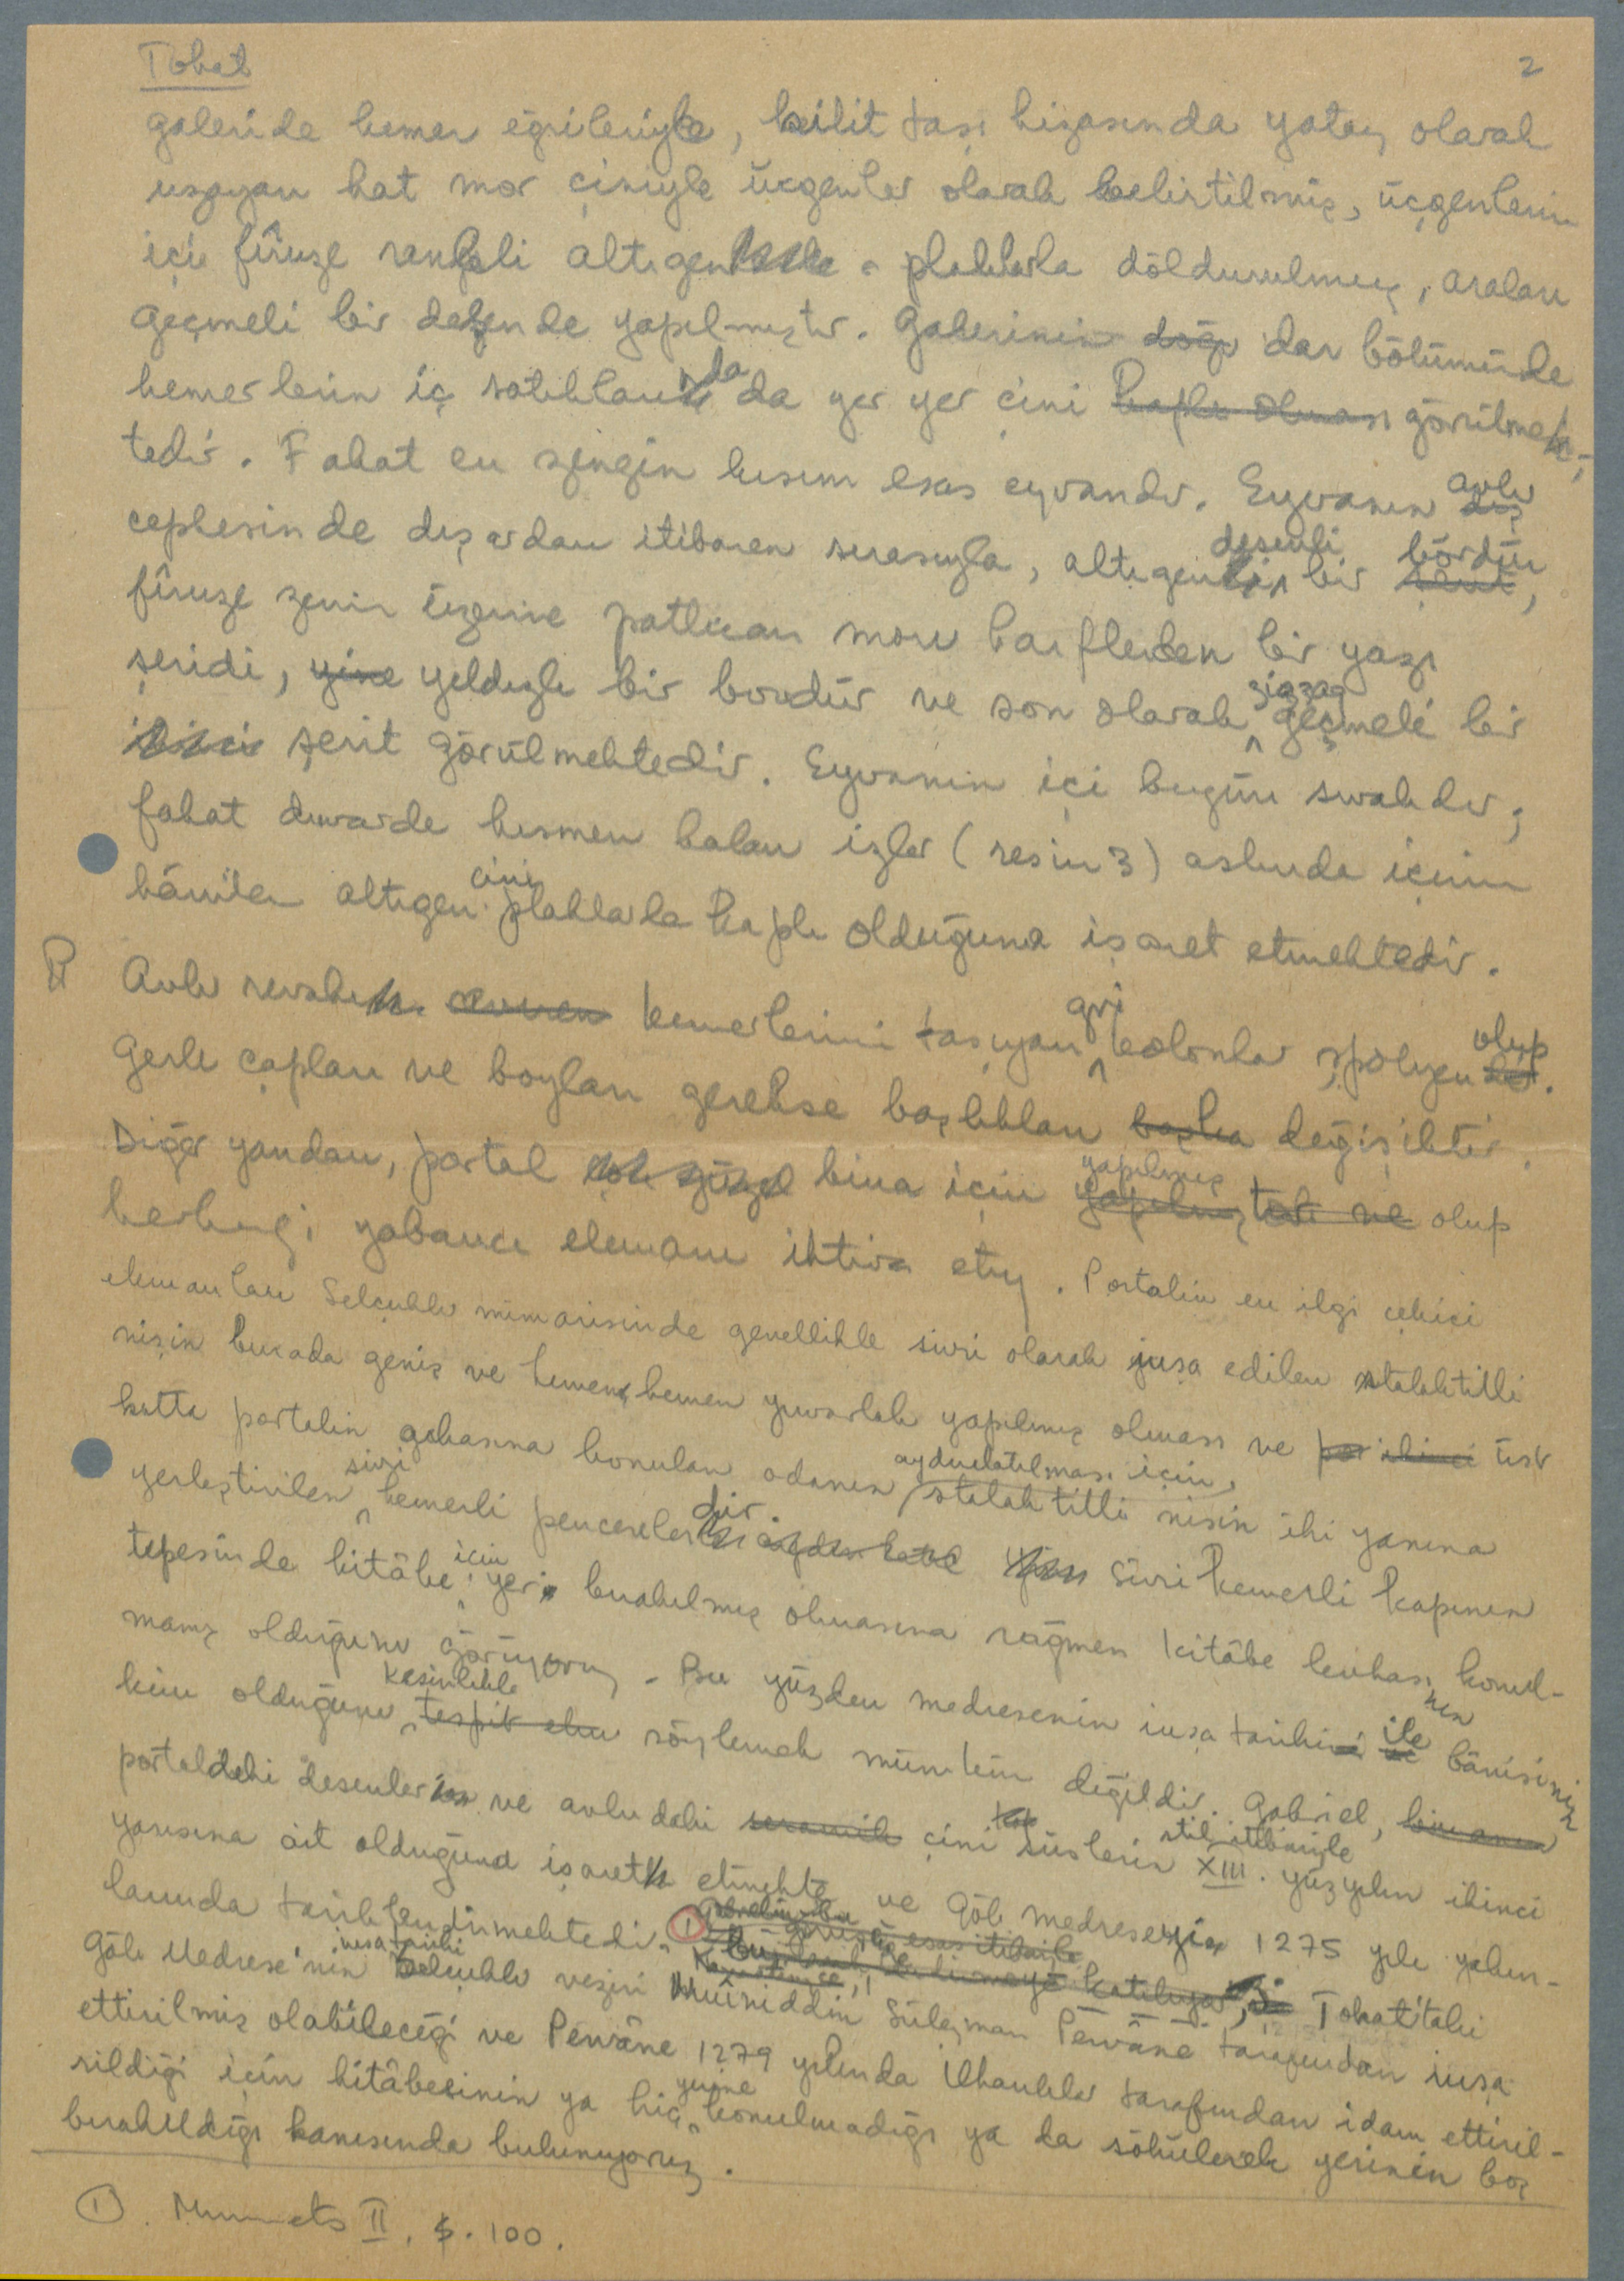 Tokat
2
galeride kemer eğrileriyle, kilit taşı hizasında yatay olarak
uzayan hat mor çiniyle üçgenler olarak belirtilmiş, üçgenlerin
içi firuze renkli altıgen plaklarla doldurulmuş, araları
geçmeli bir desende yapılmıştır. Galerinin doğu dar bölümünde
kemerlerin iç satıhlarında da yer yer çini kaplı olması görülmek-
tedir. Fakat en zengin kısım esas eyvandır. Eyvanın dış avlu
cephesinde dışardan itibaren sırasıyla, altıgen desenli bir şerit bördür,
firuze zemin üzerine patlıcan moru harflerden bir yazı
şeridi, yine yıldızlı bir bordür ve son olarak zigzag geçmeli bir
ikinci şerit görülmektedir. Eyvanın içi bugün sıvalıdır;
fakat duvarda kısmen kalan izler (resim 3) aslında içinin
kâmilen altıgen çini plaklarla kaplı olduğuna işaret etmektedir.
Avlu revakı kemerlerini taşıyan gri kolonlar şpolyen olup
gerek çapları ve boyları gerekse başlıkları başka değişiktir.
Diğer yandan, portal çok güzel bina için yapılmış tek ve olup
herhangi yabancı elemanı ihtiva etmez. Portalin en ilgi çekici
elemanları Selçuklu mimarisinde genellikle sivri olarak inşa edilen stalaktitli
nişin burada geniş ve hemen hemen yuvarlak yapılmış olması ve ikinci üst
katta portalin arkasına konulan odanın aydınlatılması için, stalaktitli nişin iki yanına
yerleştirilen sivri kemerli pencerelerdir. Sivri kemerli kapının
tepesinde kitâbe için yer bırakılmış olmasına rağmen kitâbe levhası konul-
mamış olduğunu görüyoruz. Bu yüzden medresenin inşa tarihinin ile bânisinin
kim olduğunu kesinlikle tespit söylemek mümkün değildir. Gabriel, binanın
portaldeki desenlerin ve avludaki seramik çini süslerin stil itibariyle XIII. yüzyılın ikinci
yarısına ait olduğuna işaret etmekte ve Gök medreseyi 1275 yılı yakın-
larında tarihlendirmektedir. ① Tokat'taki
Gök Medrese'nin inşa tarihi Selçuklu veziri Muîniddin Süleyman Pervâne tarafından inşa
ettirilmiş olabileceği ve Pervâne 1279 yılında İlhanlılar tarafından idam ettiril-
rildiği için kitâbesinin ya hiç yerine konulmadığı ya da sökülerek yerinin boş
bırakıldığı kanısında bulunuyoruz.
① Monuments II, s. 100.